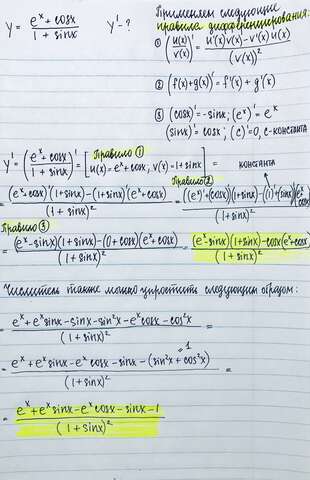 y = (e^x + cosx)/(1 + sinx)    y' - ?
Применяем следующие
правила дифференцирования:
① (u(x)/v(x))' = (u'(x)v(x) - v'(x)u(x))/(v(x))^2
② (f(x)+g(x))' = f'(x) + g'(x)
③ (cosx)' = -sinx; (e^x)' = e^x
(sinx)' = cosx; (c)' = 0, c-константа
y' = ((e^x + cosx)/(1 + sinx))' = [Правило ① u(x) = e^x + cosx, v(x) = 1 + sinx] =    константа
= ((e^x + cosx)'(1+sinx) - (1+sinx)'(e^x + cosx))/(1 + sinx)^2 = Правило ② = (((e^x)' + (cosx)')(1+sinx) - ((1)' + (sinx)')(e^x + cosx))/(1+sinx)^2
Правило ③
= ((e^x - sinx)(1+sinx) - (0 + cosx)(e^x + cosx))/(1 + sinx)^2 = ((e^x - sinx)(1+sinx) - cosx(e^x + cosx))/(1 + sinx)^2
Числитель также можно упростить следующим образом:
(e^x + e^x sinx - sinx - sin^2x - e^x cosx - cos^2x)/(1 + sinx)^2 =
= (e^x + e^x sinx - e^x cosx - sinx - (sin^2x + cos^2x))/(1 + sinx)^2 =    = 1
= (e^x + e^x sinx - e^x cosx - sinx - 1)/(1 + sinx)^2